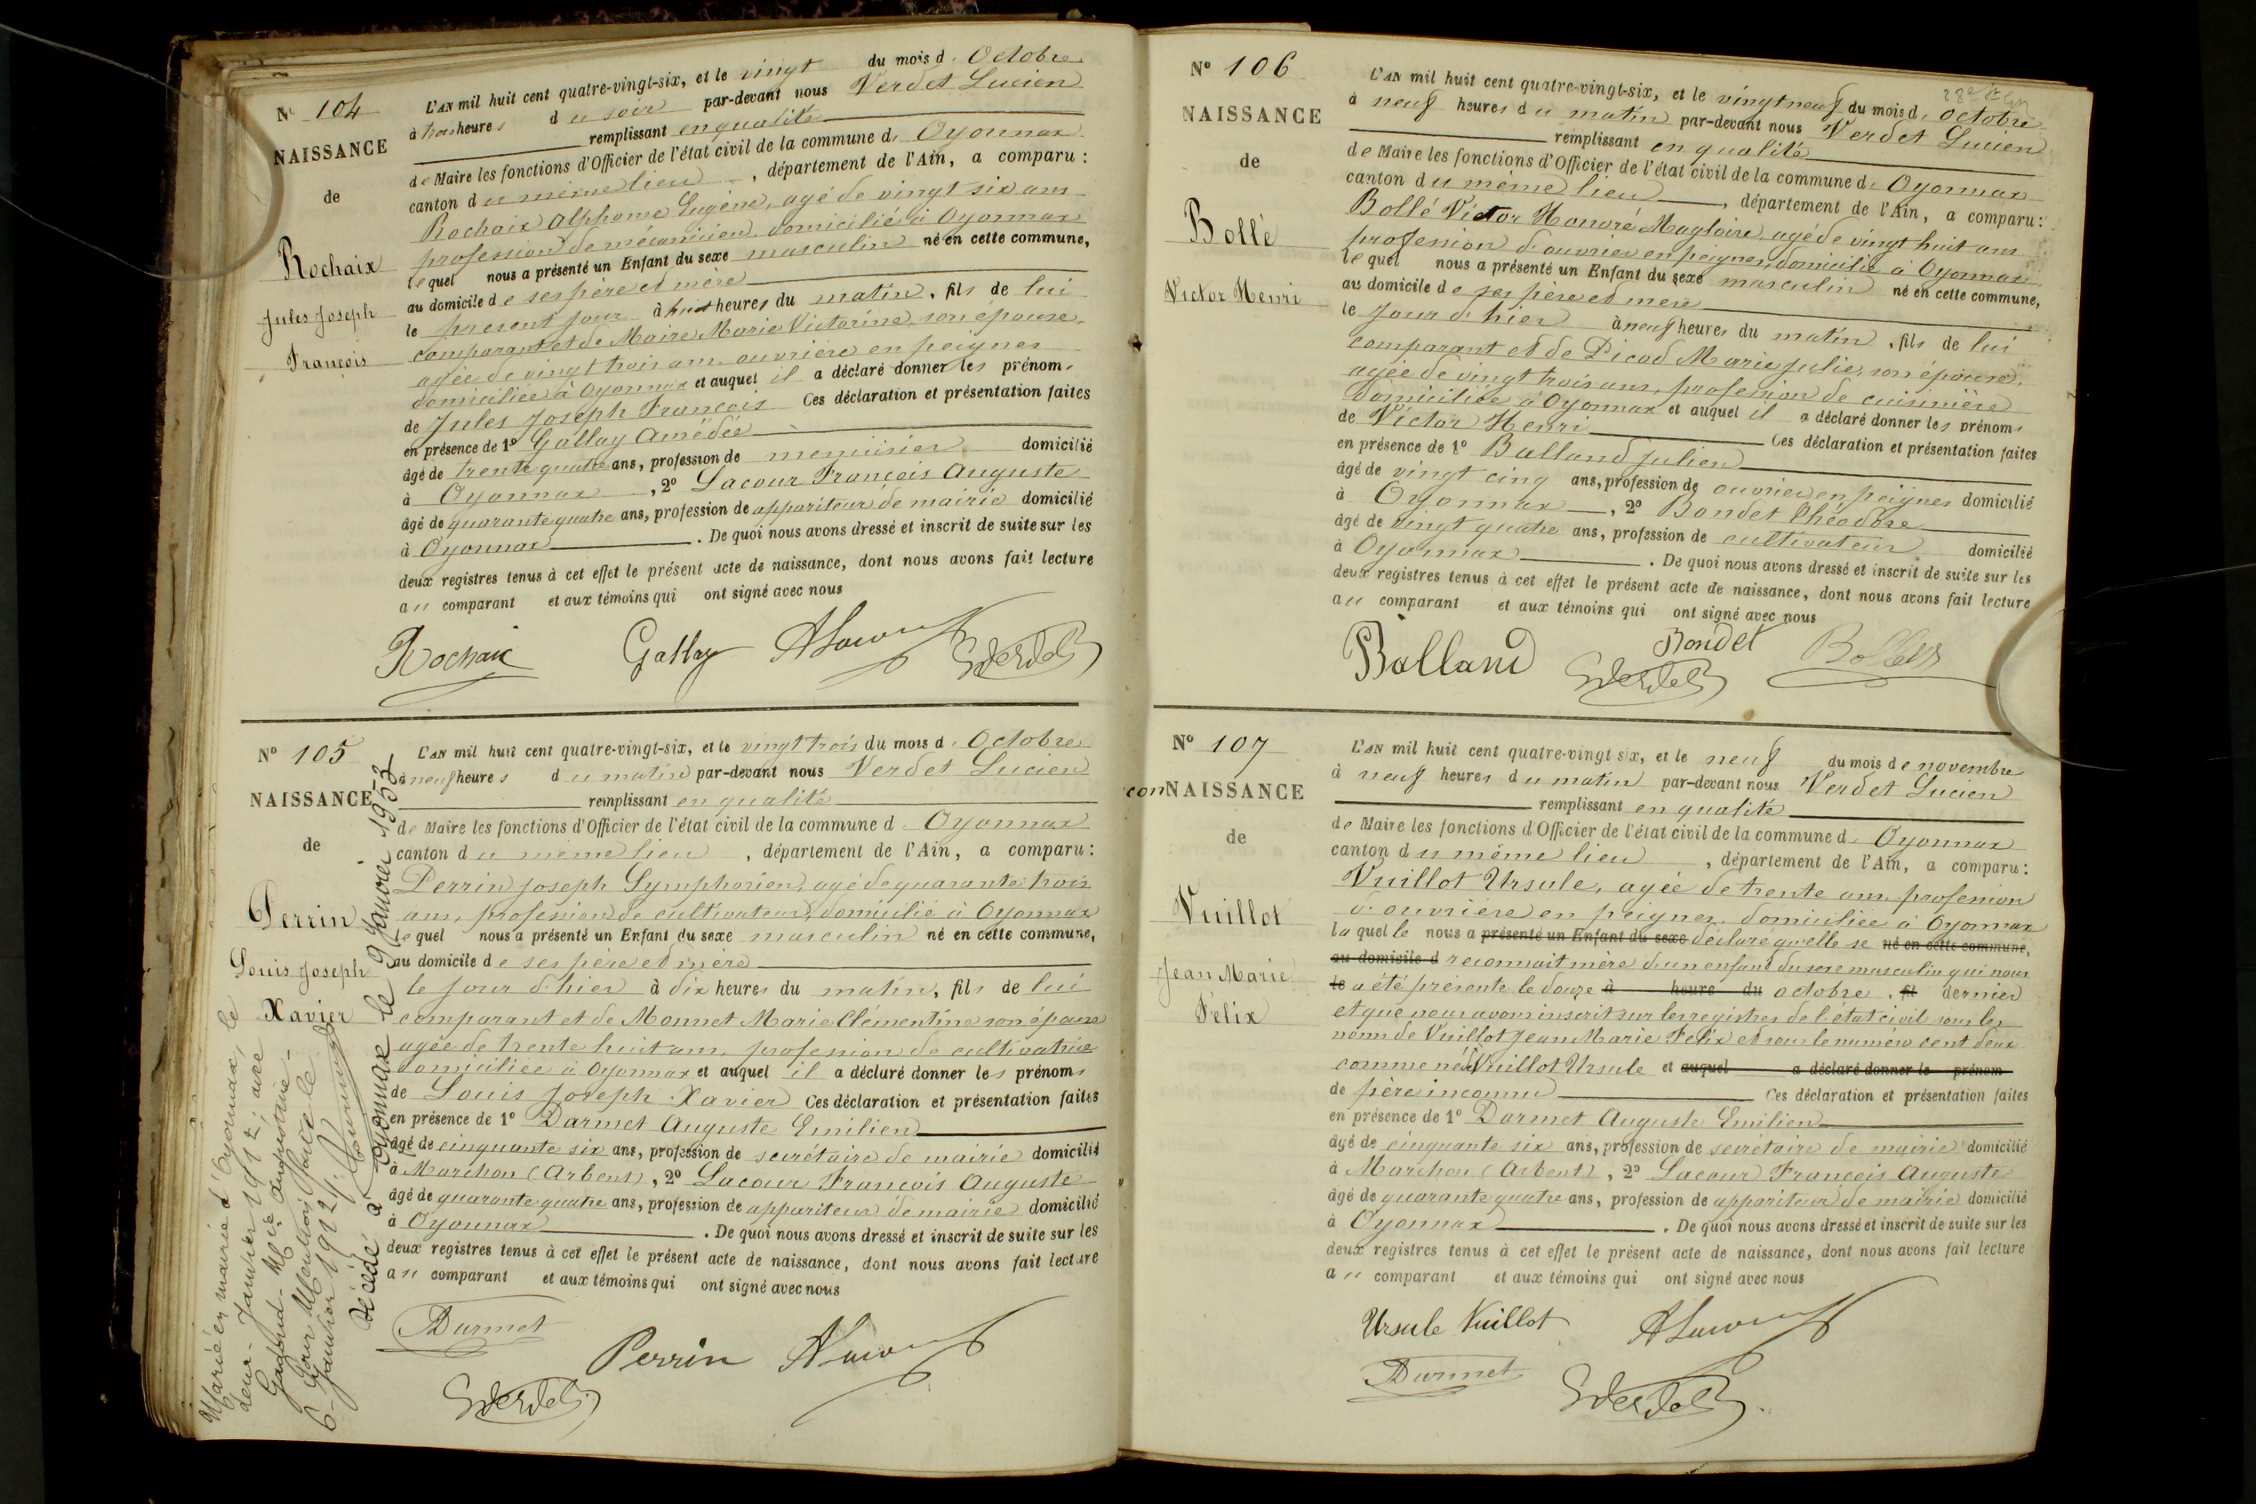 N° 104
NAISSANCE
de
Rochaix
Jules Joseph
François
L'AN mil huit cent quatre-vingt-six, et le vingt du mois d'Octobre
à trois heures du soir par-devant nous Verdet Lucien
remplissant en qualité
de Maire les fonctions d'Officier de l'état civil de la commune d'Oyonnax
canton du même lieu, département de l'Ain, a comparu :
Rochaix Alphonse Eugène, agé de vingt six ans
profession de mécanicien domicilié à Oyonnax
lequel nous a présenté un Enfant du sexe masculin né en cette commune,
au domicile de ses père et mère
le présent jour à huit heures du matin, fils de lui
comparant et de Maire Marie Victorine son épouse,
agée de vingt trois ans ouvrière en peignes
domiciliée à Oyonnax et auquel il a déclaré donner les prénoms
de Jules Joseph François Ces déclaration et présentation faites
en présence de 1° Gallay Amédée
âgé de trente quatre ans, profession de menuisier domicilié
à Oyonnax, 2° Lacour François Auguste
âgé de quarante quatre ans, profession de appariteur de mairie domicilié
à Oyonnax. De quoi nous avons dressé et inscrit de suite sur les
deux registres tenus à cet effet le présent acte de naissance, dont nous avons fait lecture
au comparant et aux témoins qui ont signé avec nous
Rochaix Gallay ALacour Verdet
N° 105
NAISSANCE
de
Perrin
Louis Joseph
Xavier
L'AN mil huit cent quatre-vingt-six, et le vingt trois du mois d'Octobre
à neuf heures du matin par-devant nous Verdet Lucien
remplissant en qualité
de Maire les fonctions d'Officier de l'état civil de la commune d'Oyonnax
canton du même lieu, département de l'Ain, a comparu :
Perrin Joseph Symphorien, agé de quarante trois
ans, profession de cultivateur, domicilié à Oyonnax
lequel nous a présenté un Enfant du sexe masculin né en cette commune,
au domicile de ses père et mère
le jour d'hier à dix heures du matin, fils de lui
comparant et de Monnet Marie Clémentine son épouse
agée de trente huit ans, profession de cultivatrice
domiciliée à Oyonnax et auquel il a déclaré donner les prénoms
de Louis Joseph Xavier Ces déclaration et présentation faites
en présence de 1° Darmet Auguste Emilien
âgé de cinquante six ans, profession de secrétaire de mairie domicilié
à Marchon (Arbent), 2° Lacour François Auguste
âgé de quarante quatre ans, profession de appariteur de mairie domicilié
à Oyonnax. De quoi nous avons dressé et inscrit de suite sur les
deux registres tenus à cet effet le présent acte de naissance, dont nous avons fait lecture
au comparant et aux témoins qui ont signé avec nous
Darmet Perrin ALacour
Verdet
Marié en mairie d'Oyonnax, le
deux Janvier 1912, avec
Marie Augustine
Pour Mention faite le
6 Janvier 1912
Décédé à Oyonnax le 9 Janvier 1953
N° 106
NAISSANCE
de
Bollé
Victor Henri
L'AN mil huit cent quatre-vingt-six, et le vingt neuf du mois d'octobre
à neuf heures du matin par-devant nous Verdet Lucien
remplissant en qualité
de Maire les fonctions d'Officier de l'état civil de la commune d'Oyonnax
canton du même lieu, département de l'Ain, a comparu :
Bollé Victor Honoré Magloire, agé de vingt huit ans
profession d'ouvrier en peignes, domicilié à Oyonnax
lequel nous a présenté un Enfant du sexe masculin né en cette commune,
au domicile de ses père et mère
le jour d'hier à neuf heures du matin, fils de lui
comparant et de Picod Marie Julie, son épouse,
agée de vingt trois ans, profession de cuisinière
domiciliée à Oyonnax et auquel il a déclaré donner les prénoms
de Victor Henri Ces déclaration et présentation faites
en présence de 1° Balland Julien
âgé de vingt cinq ans, profession de ouvrier en peignes domicilié
à Oyonnax, 2° Bondet Théodore
âgé de vingt quatre ans, profession de cultivateur domicilié
à Oyonnax. De quoi nous avons dressé et inscrit de suite sur les
deux registres tenus à cet effet le présent acte de naissance, dont nous avons fait lecture
au comparant et aux témoins qui ont signé avec nous
Balland Verdet Bondet
N° 107
NAISSANCE
de
Vuillot
Jean Marie
Félix
L'AN mil huit cent quatre-vingt six, et le neuf du mois de novembre
à neuf heures du matin par-devant nous Verdet Lucien
remplissant en qualité
de Maire les fonctions d'Officier de l'état civil de la commune d'Oyonnax
canton du même lieu, département de l'Ain, a comparu :
Vuillot Ursule, agée de trente ans profession
d'ouvrière en peignes domiciliée à Oyonnax
laquelle nous a présenté un Enfant du sexe déclaré qu'elle se né en cette commune,
au domicile d reconnait mère d'un enfant du sexe masculin qui nous
le a été présenté le douze à heure du octobre, fil dernier
et que nous avons inscrit sur les registres de l'état civil sous les
noms de Vuillot Jean Marie Félix et sous le numéro cent deux
comme né de Vuillot Ursule et auquel a déclaré donner le prénom
de père inconnu Ces déclaration et présentation faites
en présence de 1° Darmet Auguste Emilien
âgé de cinquante six ans, profession de secrétaire de mairie domicilié
à Marchon (Arbent), 2° Lacour François Auguste
âgé de quarante quatre ans, profession de appariteur de mairie domicilié
à Oyonnax. De quoi nous avons dressé et inscrit de suite sur les
deux registres tenus à cet effet le présent acte de naissance, dont nous avons fait lecture
au comparant et aux témoins qui ont signé avec nous
Ursule Vuillot ALacour
Darmet Verdet